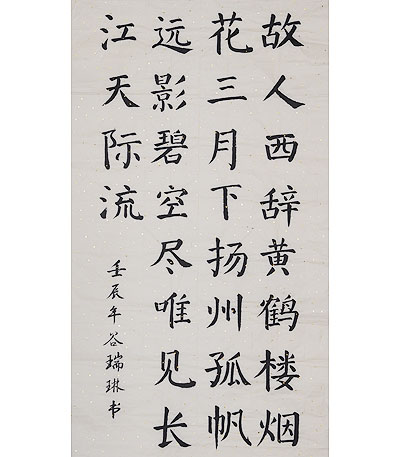 故人西辞黄鹤楼烟
花三月下扬州孤帆
远影碧空尽唯见长
江天际流
壬辰年谷瑞琳书